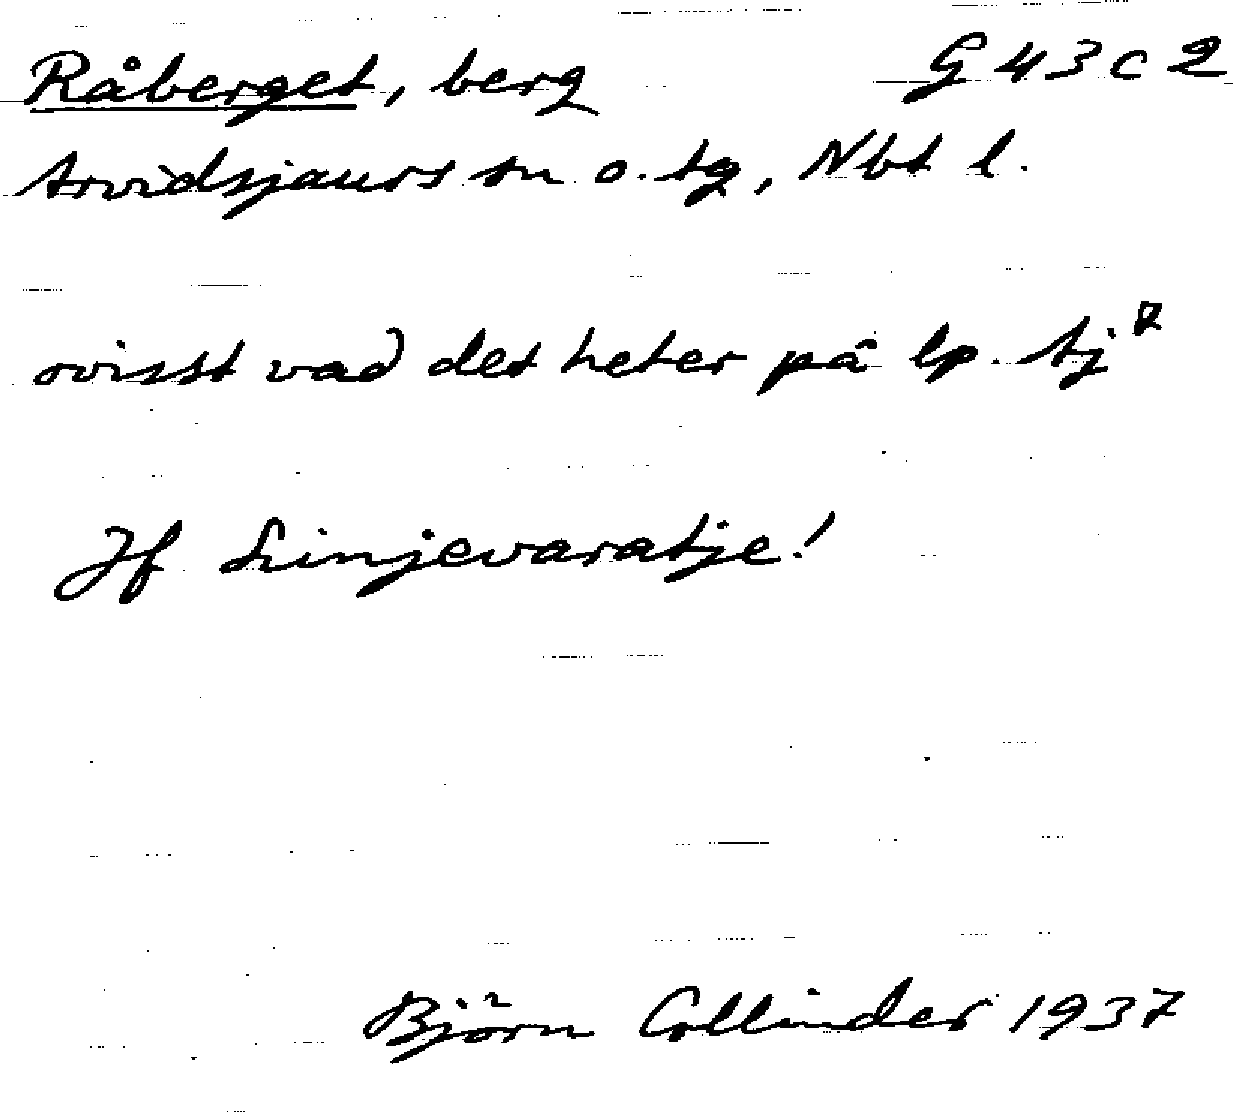 Råberget, berg G 43 c 2
Arvidsjaurs sn o. tg, Nbt l.
ovisst vad det heter på lp. Aj
Jf Linjevaratje!
Björn Collinder 1937